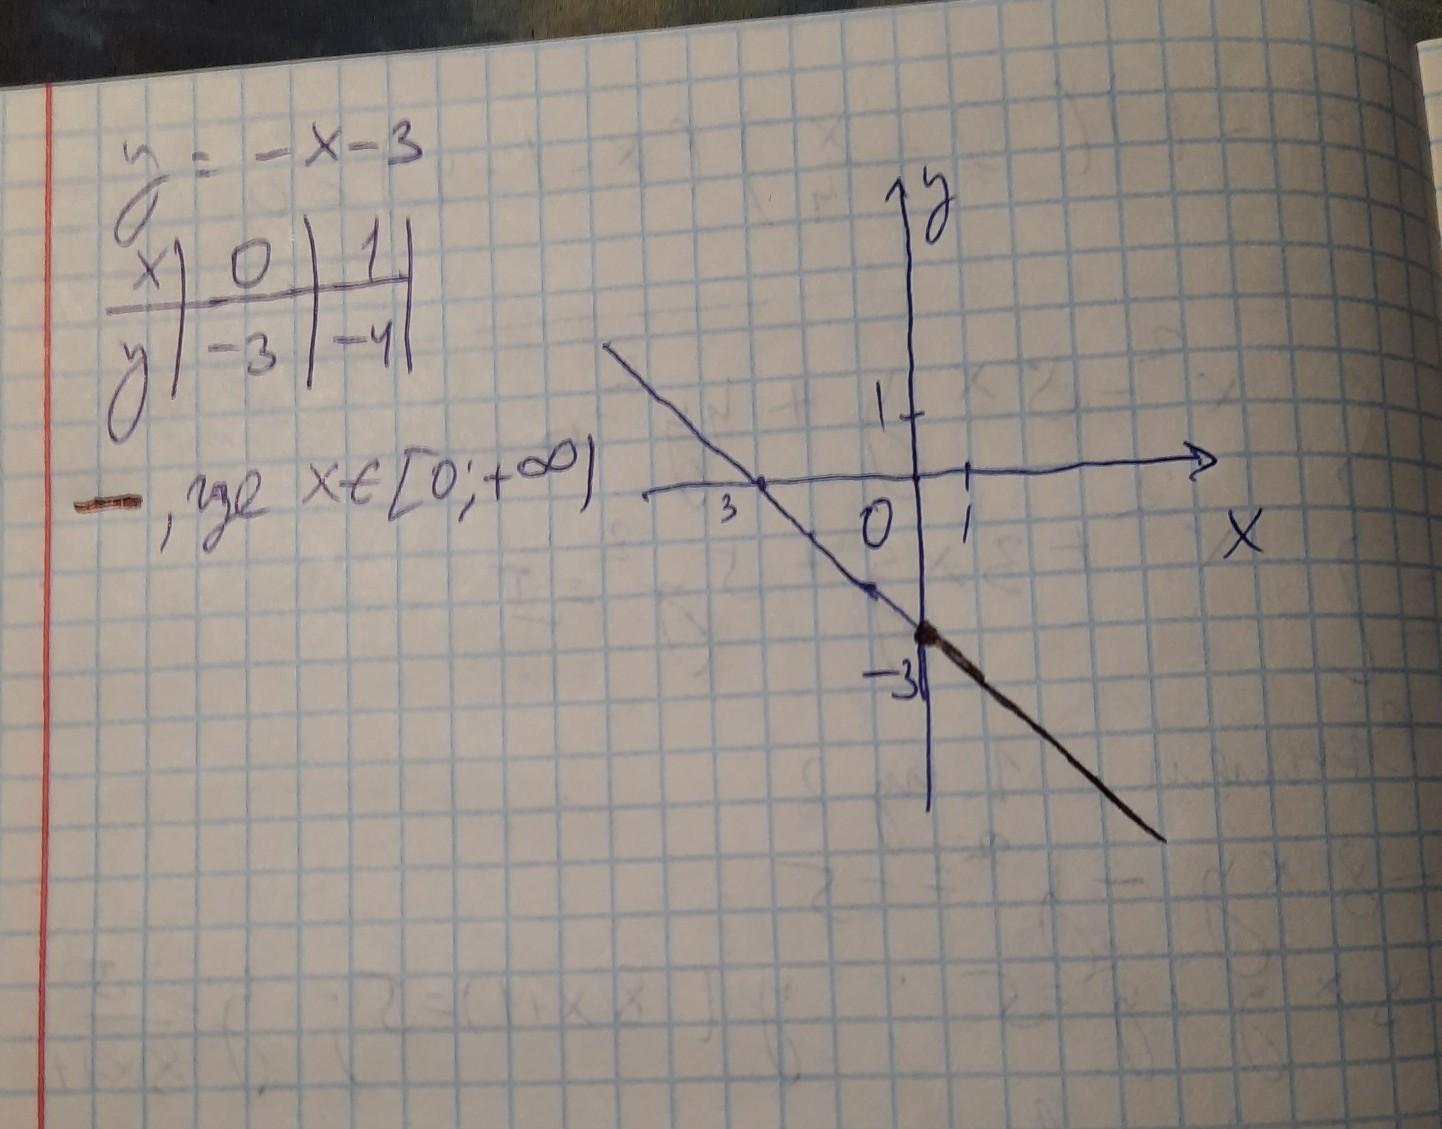 y = -x-3
x | 0 | 1 |
y | -3 | -4 |
, где x∈[0;+∞)
y
1
3 0 1
x
-3